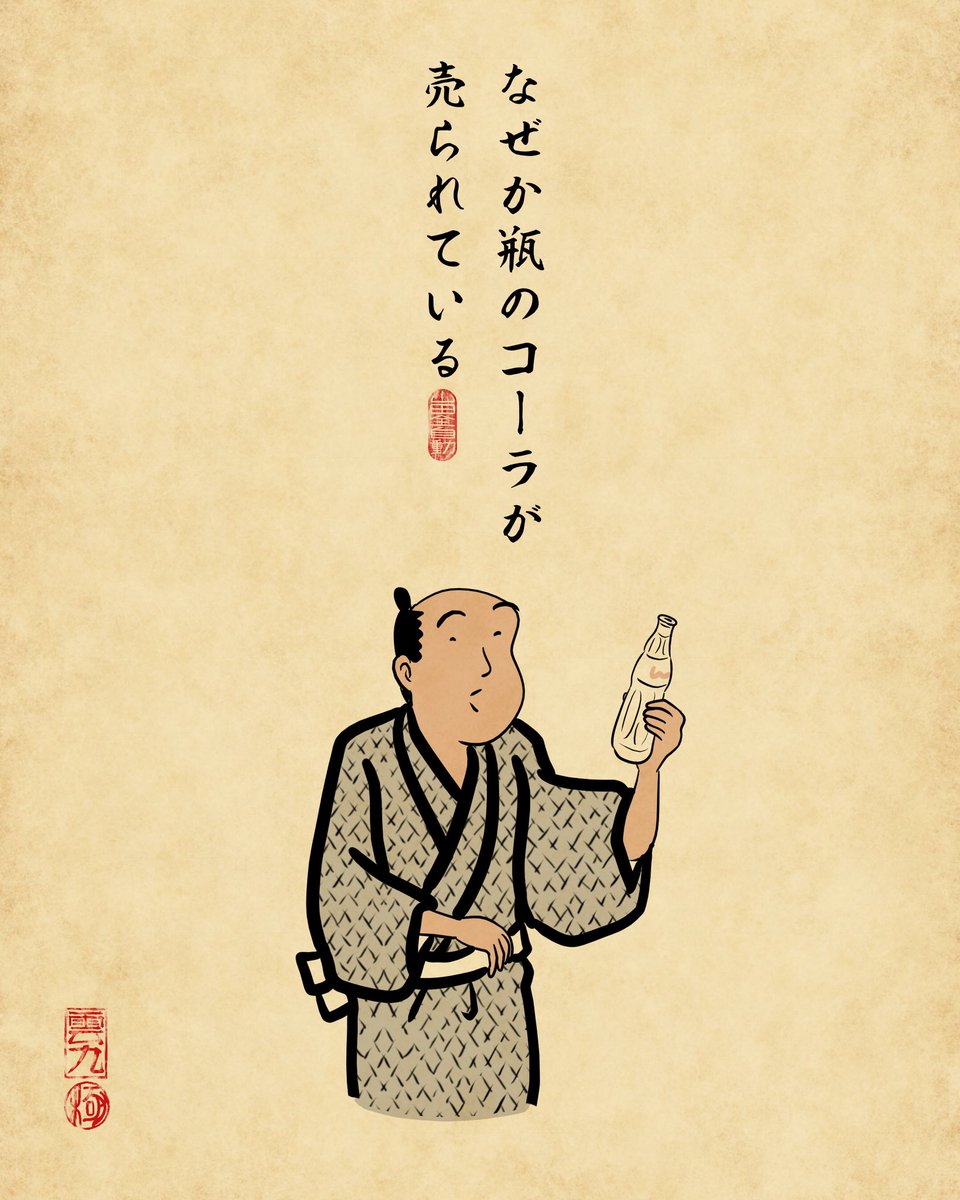 なぜか瓶のコーラが
売られている
雲丸